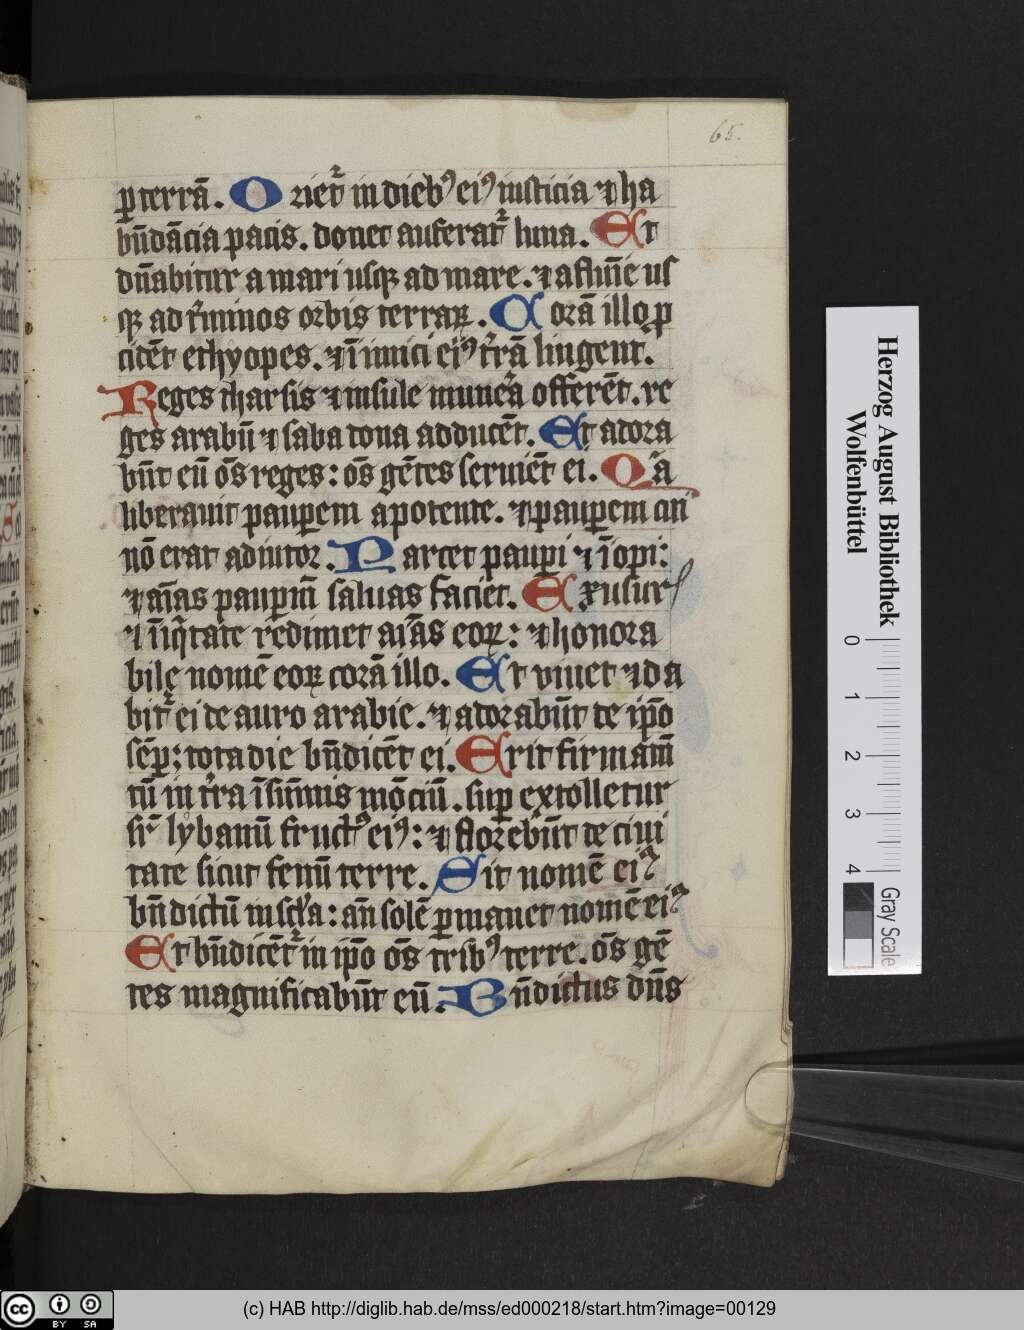 65.
ꝑ terrā. Orietᷣ in diebꝰ eiꝰ iusticia ⁊ ha
būdācia pacis. donec auferatᷣ luna. Et
dn̄abitur a mari usqꝫ ad mare. ⁊ a flumīe us
qꝫ ad tᷣminos orbis terraꝝ. Corā illo p
cidēt ethyopes. ⁊ īimici eiꝰ tᷣrā lingent.
Reges tharsis ⁊ insule munera offerēt. re
ges arabū ⁊ saba dona adducēt. Et adora
būt eū oēs reges: oēs gētes seruiēt ei. Qᷓa
liberauit pauꝑem a potente. ⁊ pauꝑem cui
nō erat adiutor. Parcet paupi ⁊ īopi:
⁊ aīas pauꝑum saluas faciet. Ex usur̄
⁊ īiqͥtate redimet aīas eoꝝ: ⁊ honora
bile nomē eoꝝ corā illo. Et viuet ⁊ da
bitᷣ ei de auro arabie. ⁊ adorabūt de ip̄o
sēꝑ: tota die bn̄dicēt ei. Erit firmamē
tū in tᷣra ī sūmis mōciū. suꝑ extolletur
sr̄ lybanū fructꝰ eiꝰ: ⁊ florebūt de ciui
tate sicut fenū terre. Sit nomē eiꝰ
bn̄dictū in scl̄a: an̄ solē ꝑmanet nomē eiꝰ
Et bn̄dicētᷣ in ip̄o oēs tribꝰ terre. oēs gē
tes magnificabūt eū. Bn̄dictus dn̄s
Herzog August Bibliothek
Wolfenbüttel
0 1 2 3 4
Gray Scale
(c) HAB http://diglib.hab.de/mss/ed000218/start.htm?image=00129
cc BY SA